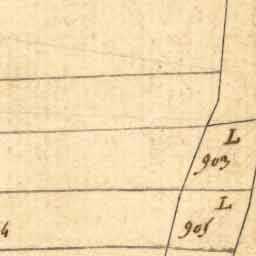 L
903
L
905
4